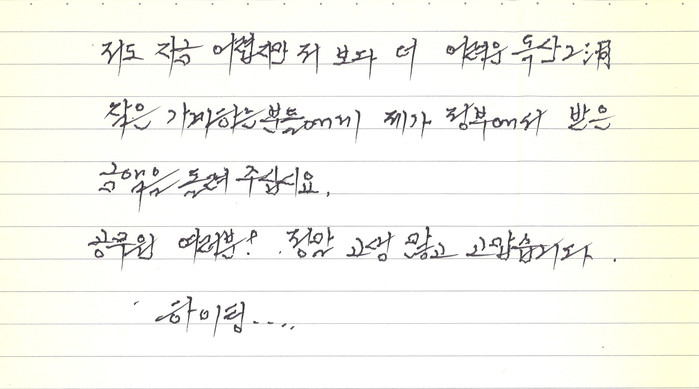 저도 지금 어렵지만 저 보다 더 어려운 독산2洞
작은 가게하는분들에게 제가 정부에서 받은
금액을 돌려 주십시요.
공무원 여러분! 정말 고생 많고 고맙습니다.
하이팅....